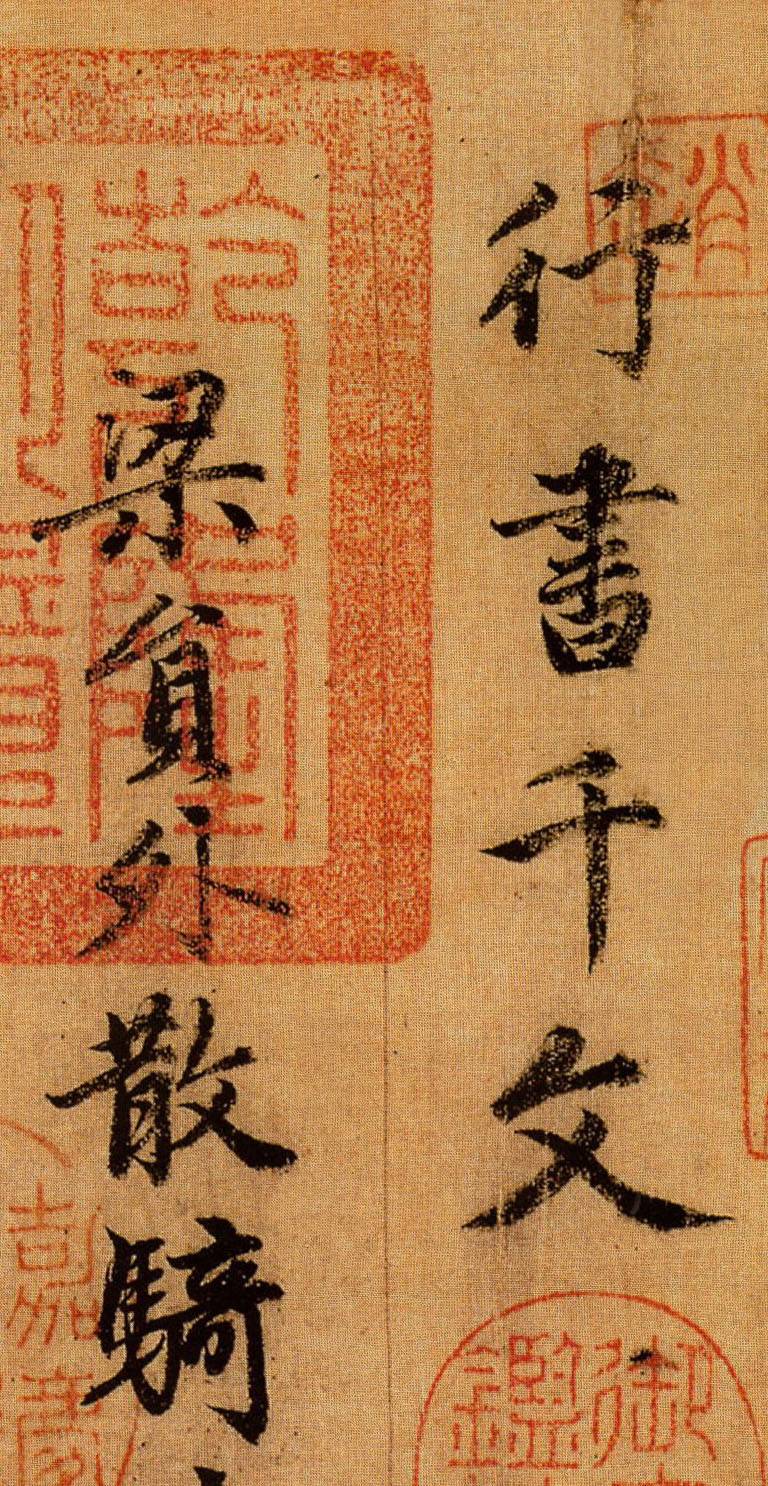 行書千文
梁員外散騎